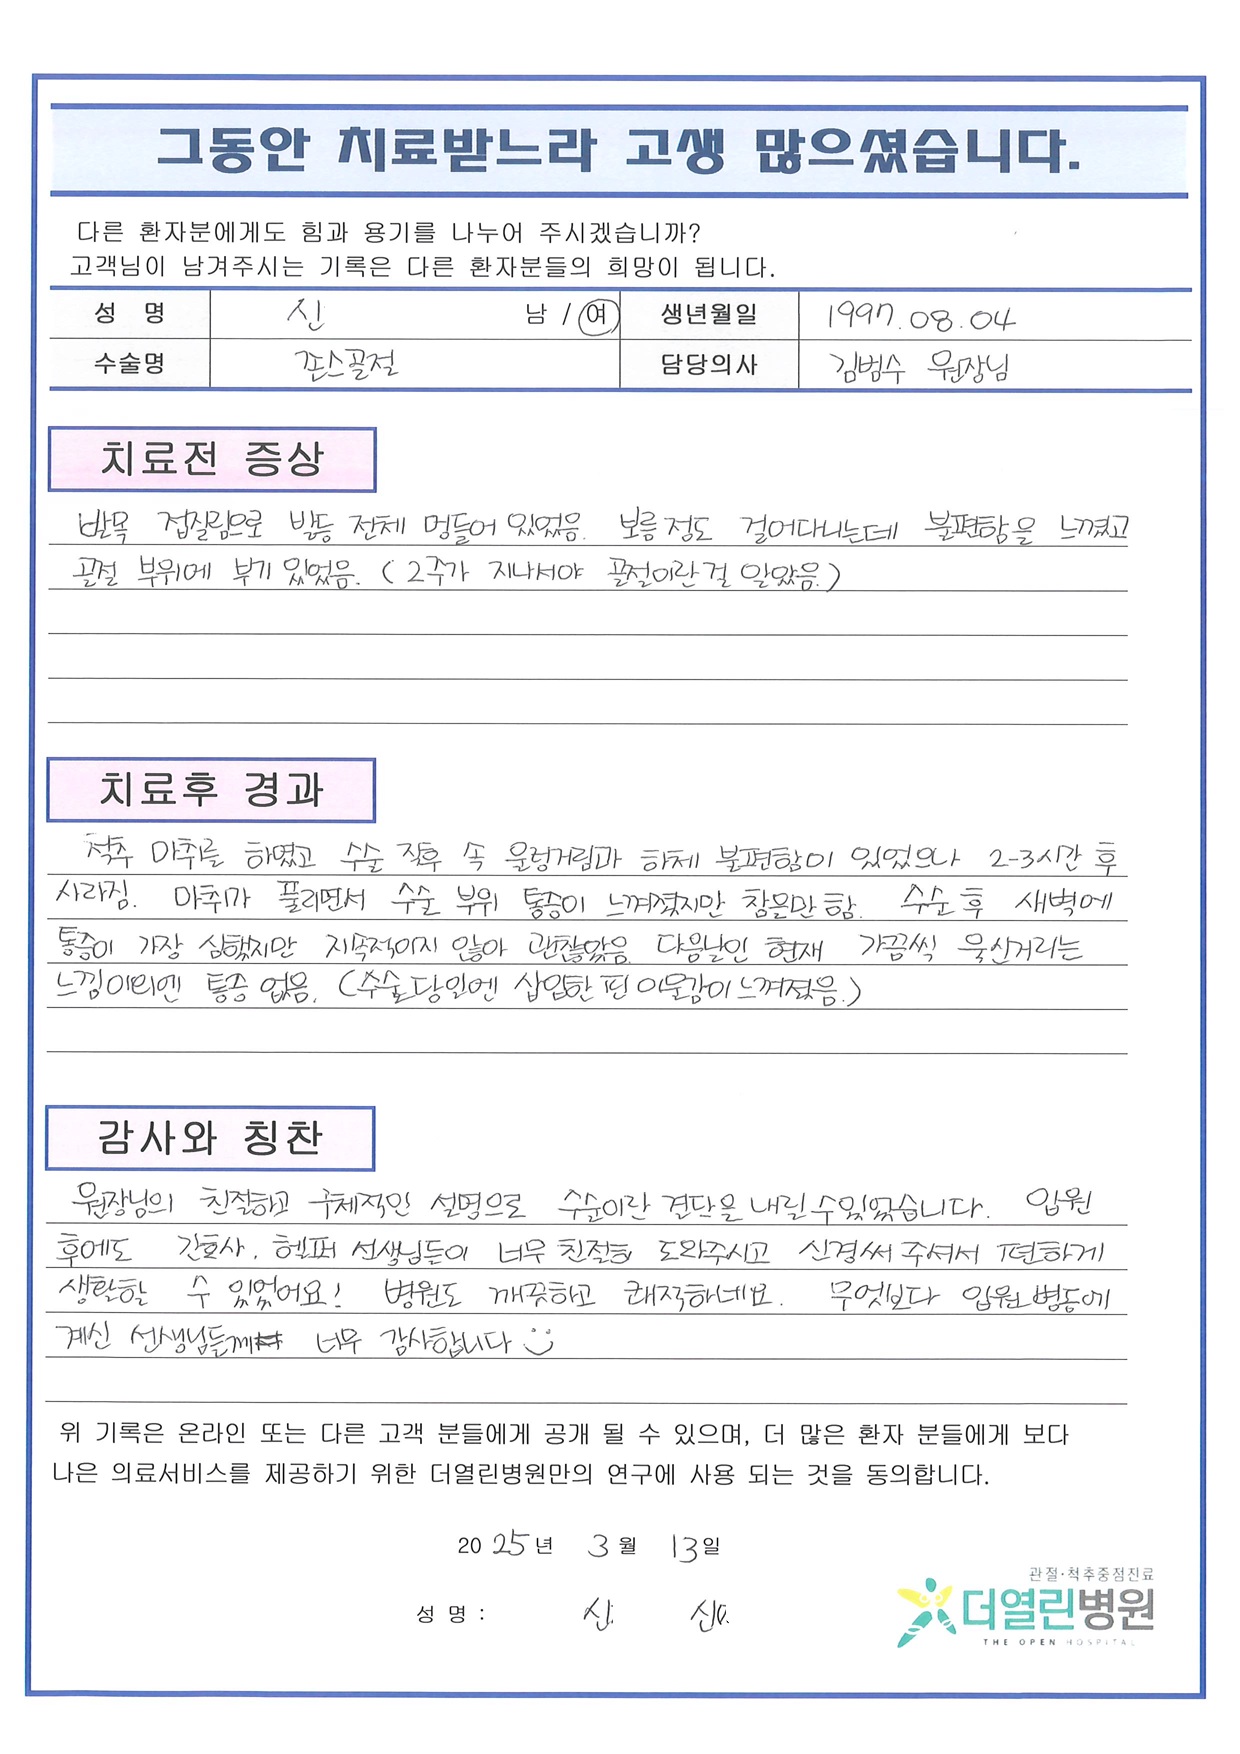 그동안 치료받느라 고생 많으셨습니다.
다른 환자분에게도 힘과 용기를 나누어 주시겠습니까?
고객님이 남겨주시는 기록은 다른 환자분들의 희망이 됩니다.
성 명 신 남 / 여 생년월일 1997.08.04
수술명 존스골절 담당의사 김범수 원장님
치료전 증상
발목 접질림으로 발등 전체 멍들어 있었음. 보름정도 걸어다니는데 불편함을 느꼈고
골절 부위에 부기 있었음. (2주가 지나서야 골절이란걸 알았음.)
치료후 경과
척추 마취를 하였고 수술 직후 속 울렁거림과 하체 불편함이 있었으나 2-3시간 후
사라짐. 마취가 풀리면서 수술 부위 통증이 느껴졌지만 참을만함. 수술후 새벽에
통증이 가장 심했지만 지속적이지 않아 괜찮았음. 다음날인 현재 가끔씩 욱신거리는
느낌이외엔 통증 없음. (수술당일엔 삽입한 핀 이물감이 느껴졌음.)
감사와 칭찬
원장님의 친절하고 구체적인 설명으로 수술이란 결단을 내릴 수 있었습니다. 입원
후에도 간호사, 헬퍼 선생님들이 너무 친절히 도와주시고 신경써 주셔서 편하게
생활할 수 있었어요! 병원도 깨끗하고 쾌적하네요. 무엇보다 입원병동에
계신 선생님들께 너무 감사합니다
위 기록은 온라인 또는 다른 고객 분들에게 공개 될 수 있으며, 더 많은 환자 분들에게 보다
나은 의료서비스를 제공하기 위한 더열린병원만의 연구에 사용 되는 것을 동의합니다.
2025년 3월 13일
성 명 : 신 신
관절·척추중점진료
더열린병원
THE OPEN HOSPITAL